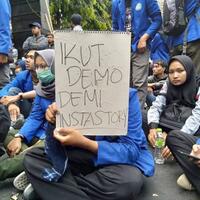 IKUT
DEMO
DEMI
INSTASTORY